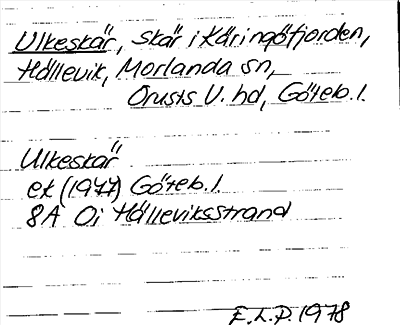 Ulkeskär, skär i Käringöfjorden,
Hällevik, Morlanda sn,
Orusts V. hd, Göteb. l.
Ulkeskär
ek (1977) Göteb. l.
8A Oi Hälleviksstrand
E.L.P. 1978